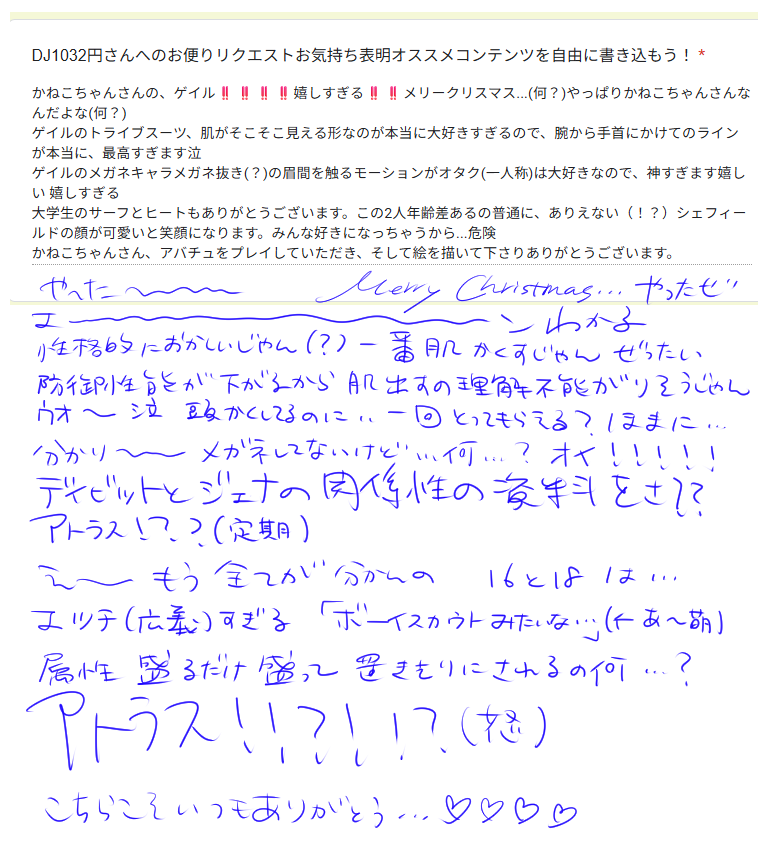 DJ1032円さんへのお便りリクエストお気持ち表明オススメコンテンツを自由に書き込もう！ *
かねこちゃんさんの、ゲイル‼️‼️‼️‼️嬉しすぎる‼️‼️メリークリスマス...(何？)やっぱりかねこちゃんさんな
んだよな(何？)
ゲイルのトライブスーツ、肌がそこそこ見える形なのが本当に大好きすぎるので、腕から手首にかけてのライン
が本当に、最高すぎます泣
ゲイルのメガネキャラメガネ抜き(？)の眉間を触るモーションがオタク(一人称)は大好きなので、神すぎます嬉し
い 嬉しすぎる
大学生のサーフとヒートもありがとうございます。この2人年齢差あるの普通に、ありえない（！？）シェフィー
ルドの顔が可愛いと笑顔になります。みんな好きになっちゃうから...危険
かねこちゃんさん、アバチュをプレイしていただき、そして絵を描いて下さりありがとうございます。
やった〜〜〜 Merry Christmas... やったぜ
エ〜〜〜〜ン わかる
性格的におかしいじゃん(?) 一番肌かくすじゃん ぜったい
防御性能が下がるから 肌出すの理解不能がりそうじゃん
ウオ〜 泣 頭かくしてるのに.. 一回とってもらえる? ほまに...
分かり〜〜 メガネしてないけど...何...? オイ!!!!!
デイビットとジェナの関係性の資料をさ??
アトラス!??(定期)
え〜〜 もう全てが分かんの 16と18は...
エッチ(広義)すぎる 「ボーイスカウトみたいな...」(←あ〜萌)
属性 盛るだけ盛って 置きもりにされるの何...?
アトラス!!?!!?(怒)
こちらこそいつもありがとう...♡♡♡♡